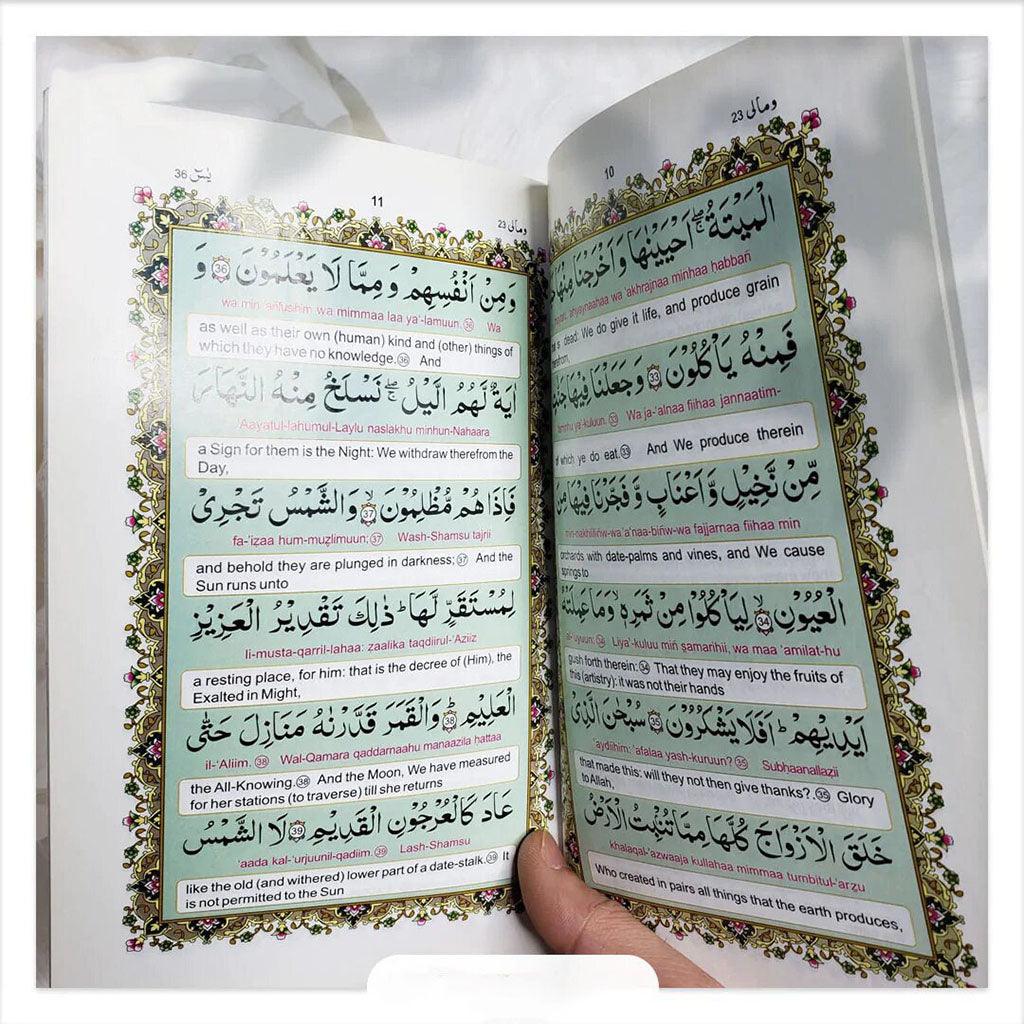 ومالی 23
10
الْمَيْتَةُ ۖۚ اَحْيَيْنٰهَا وَاَخْرَجْنَا مِنْهَا
aḥyaynaahaa wa 'akhrajnaa minhaa ḥabbañ
is dead: We do give it life, and produce grain
فَمِنْهُ يَاْكُلُوْنَ ۳۳ وَجَعَلْنَا فِيْهَا
ya'-kuluun. 33 Wa ja-'alnaa fiihaa jannaatim-
of which ye do eat.33 And We produce therein
مِّنْ نَّخِيْلٍ وَّاَعْنَابٍ وَّفَجَّرْنَا فِيْهَا مِنَ
min-nakhiiliñw-wa-'a'naa-biñw-wa fajjarnaa fiihaa min
orchards with date-palms and vines, and We cause
springs to
الْعُيُوْنِ ۙ 34 لِيَاْكُلُوْا مِنْ ثَمَرِهٖ ۙ وَمَا عَمِلَتْهُ
al-'uyuun: 34 Liya'-kuluu miñ s̱amarihii, wa maa 'amilat-hu
gush forth therein:34 That they may enjoy the fruits of
this (artistry): it was not their hands
اَيْدِيْهِمْ ؕ اَفَلَا يَشْكُرُوْنَ 35 سُبْحٰنَ الَّذِيْ
'aydiihim: 'afalaa yash-kuruun? 35 Subḥaanallazii
that made this: will they not then give thanks?.35 Glory
to Allah,
خَلَقَ الْاَزْوَاجَ كُلَّهَا مِمَّا تُنْۢبِتُ الْاَرْضُ
khalaqal-'azwaaja kullahaa mimmaa tumbitul-'arẓu
Who created in pairs all things that the earth produces,
یٰسٓ 36
11
ومالی 23
وَمِنْ اَنْفُسِهِمْ وَمِمَّا لَا يَعْلَمُوْنَ 36 وَ
wa min 'añfusihim wa mimmaa laa ya'-lamuun.36 Wa
as well as their own (human) kind and (other) things of
which they have no knowledge.36 And
اٰيَةٌ لَّهُمُ الَّيْلُ ۖۚ نَسْلَخُ مِنْهُ النَّهَارَ
'Aayatul-lahumul-Laylu naslakhu minhun-Nahaara
a Sign for them is the Night: We withdraw therefrom the
Day,
فَاِذَا هُمْ مُّظْلِمُوْنَ ۙ 37 وَالشَّمْسُ تَجْرِيْ
fa-'iẕaa hum-muẓlimuun;37 Wash-Shamsu tajrii
and behold they are plunged in darkness;37 And the
Sun runs unto
لِمُسْتَقَرٍّ لَّهَا ؕ ذٰلِكَ تَقْدِيْرُ الْعَزِيْزِ
li-musta-qarril-lahaa: zaalika taqdiirul-'Aziiz
a resting place, for him: that is the decree of (Him), the
Exalted in Might,
الْعَلِيْمِ ؕ 38 وَالْقَمَرَ قَدَّرْنٰهُ مَنَازِلَ حَتّٰى
il-'Aliim. 38 Wal-Qamara qaddarnaahu manaazila ḥattaa
the All-Knowing.38 And the Moon, We have measured
for her stations (to traverse) till she returns
عَادَ كَالْعُرْجُوْنِ الْقَدِيْمِ 39 لَا الشَّمْسُ
'aada kal-'urjuunil-qadiim.39 Lash-Shamsu
like the old (and withered) lower part of a date-stalk.39 It
is not permitted to the Sun